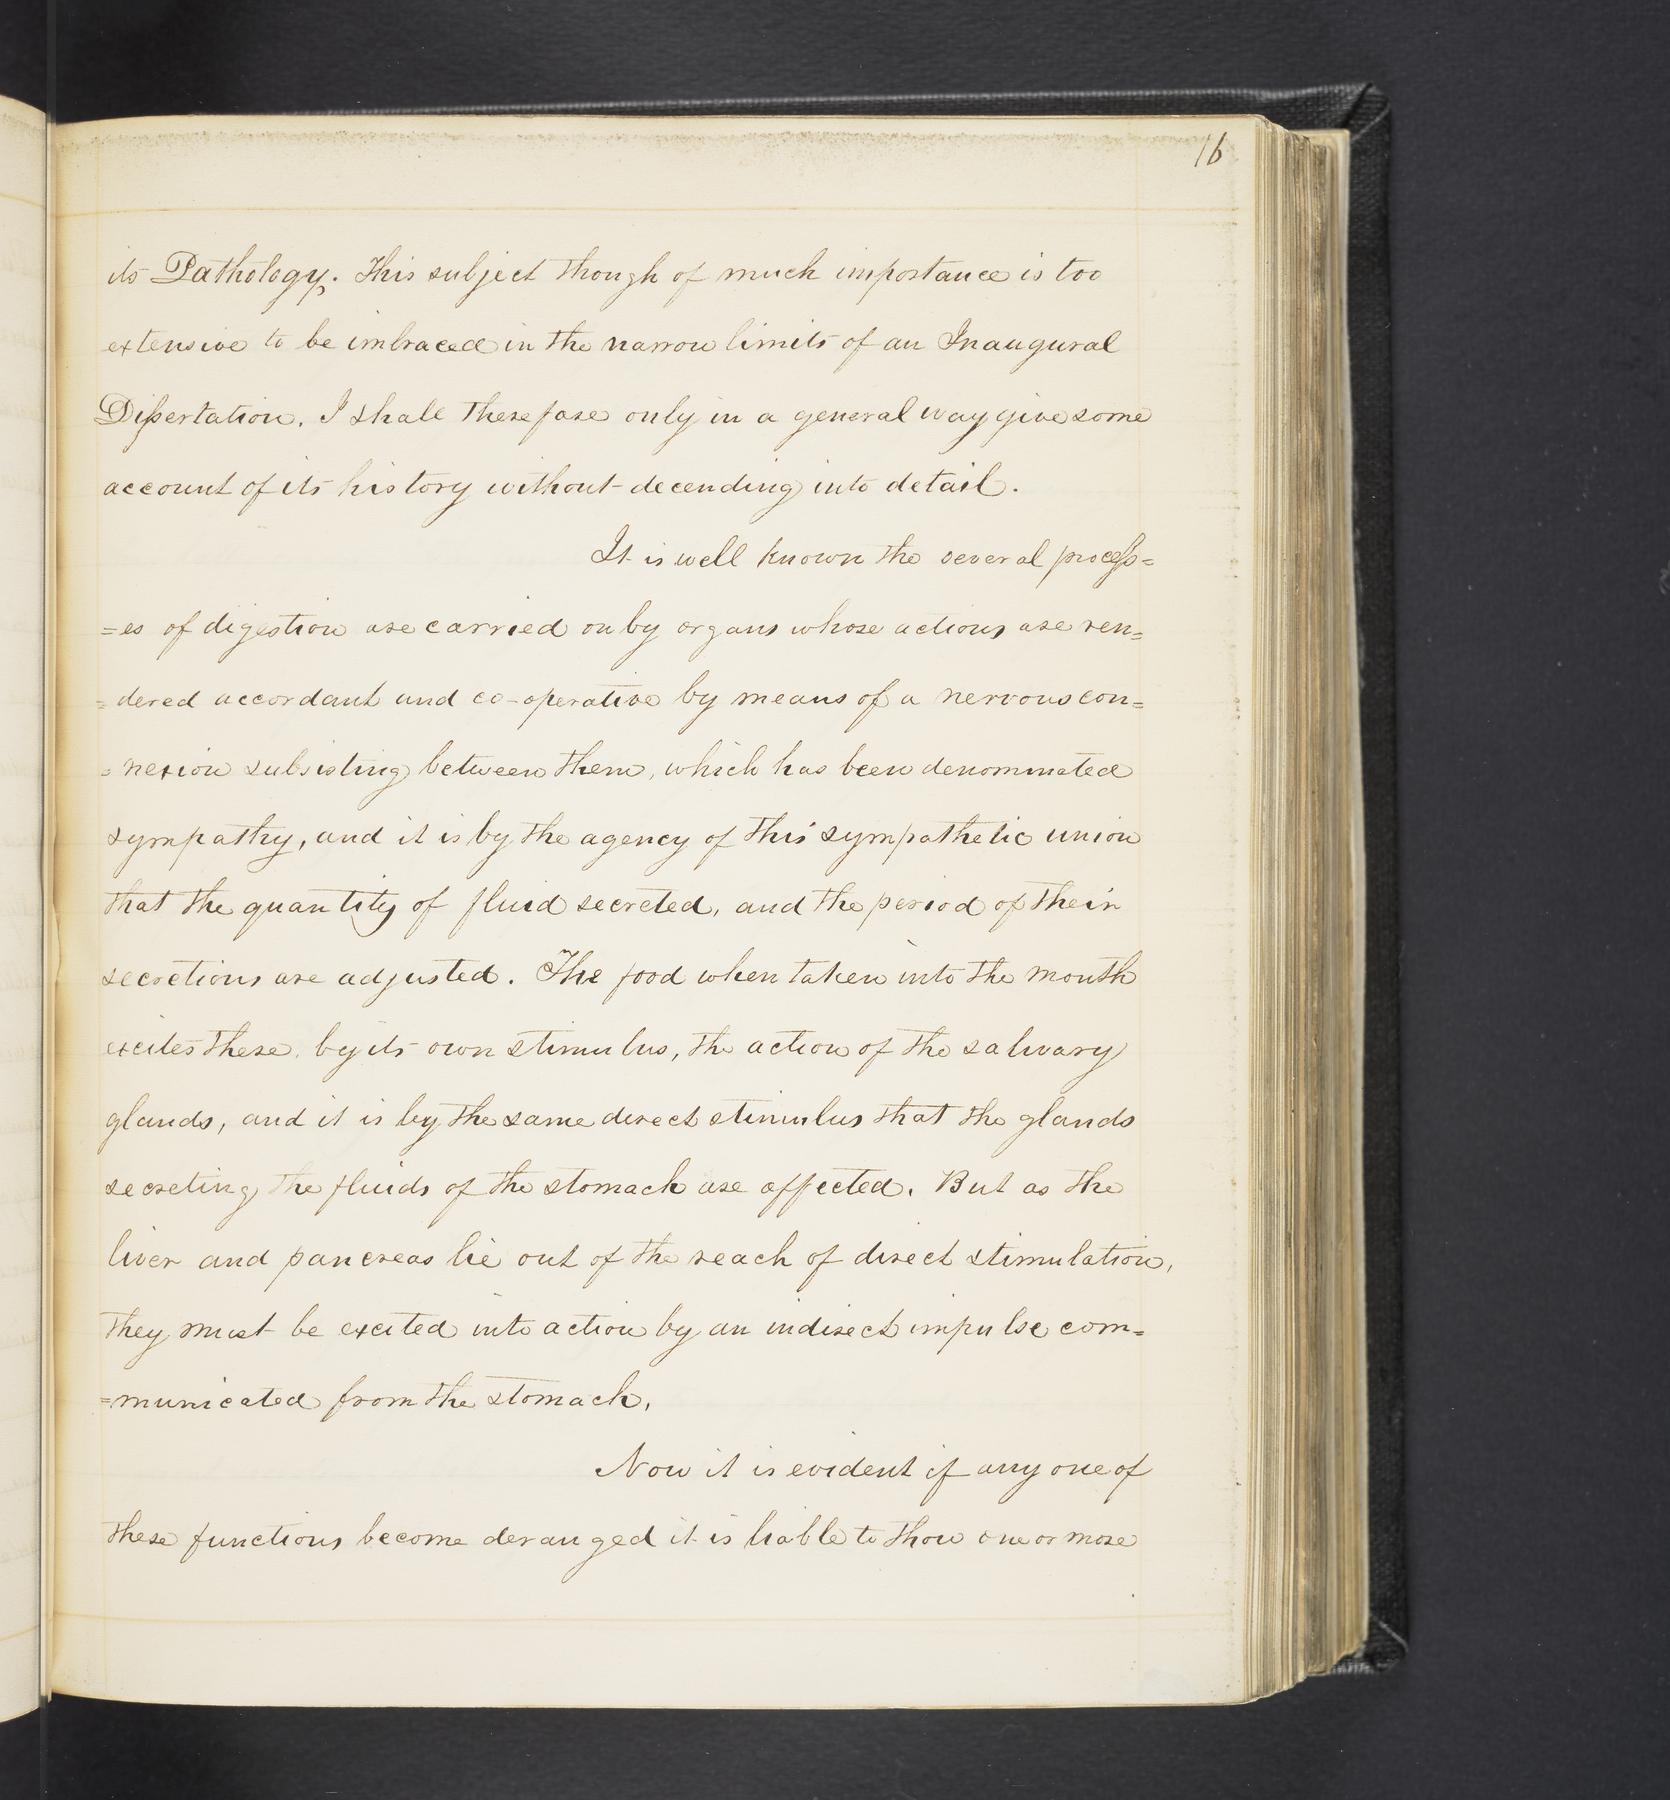 16
its Pathology. This subject though of much importance is too
extensive to be imbraced in the narrow limits of an Inaugural
Dissertation. I shall therefore only in a general way give some
account of its history without decending into detail.
It is well known the several process=
=es of digestion are carried on by organs whose actions are ren=
=dered accordant and co-operative by means of a nervous con=
=nexion subsisting between them, which has been denominated
sympathy, and it is by the agency of this sympathetic union
that the quantity of fluid secreted, and the period of their
secretions are adjusted. The food when taken into the mouth
excites these, by its own stimulus, the action of the salivary
glands, and it is by the same direct stimulus that the glands
secreting the fluids of the stomach are affected. But as the
liver and pancreas lie out of the reach of direct stimulation,
they must be excited into action by an indirect impulse com=
=municated from the stomach.
Now it is evident if any one of
these functions become deranged it is liable to thow one or more